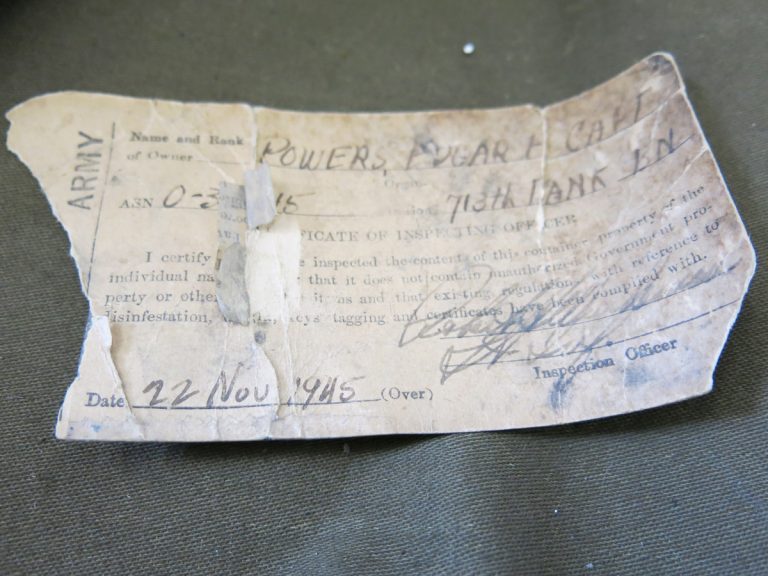 ARMY
Name and Rank POWERS, EDGAR F CAPT
of Owner
ASN O-3 15 713th TANK BN
FICATE OF INSPECTING OFFICER
I certify inspected the contents of this container property of the
individual na that it does not contain unauthorized Government pro-
perty or othe it ms and that existing regulations with reference to
disinfestation, tagging and certificates have been complied with.
Inspection Officer
Date 22 Nov 1945 (Over)